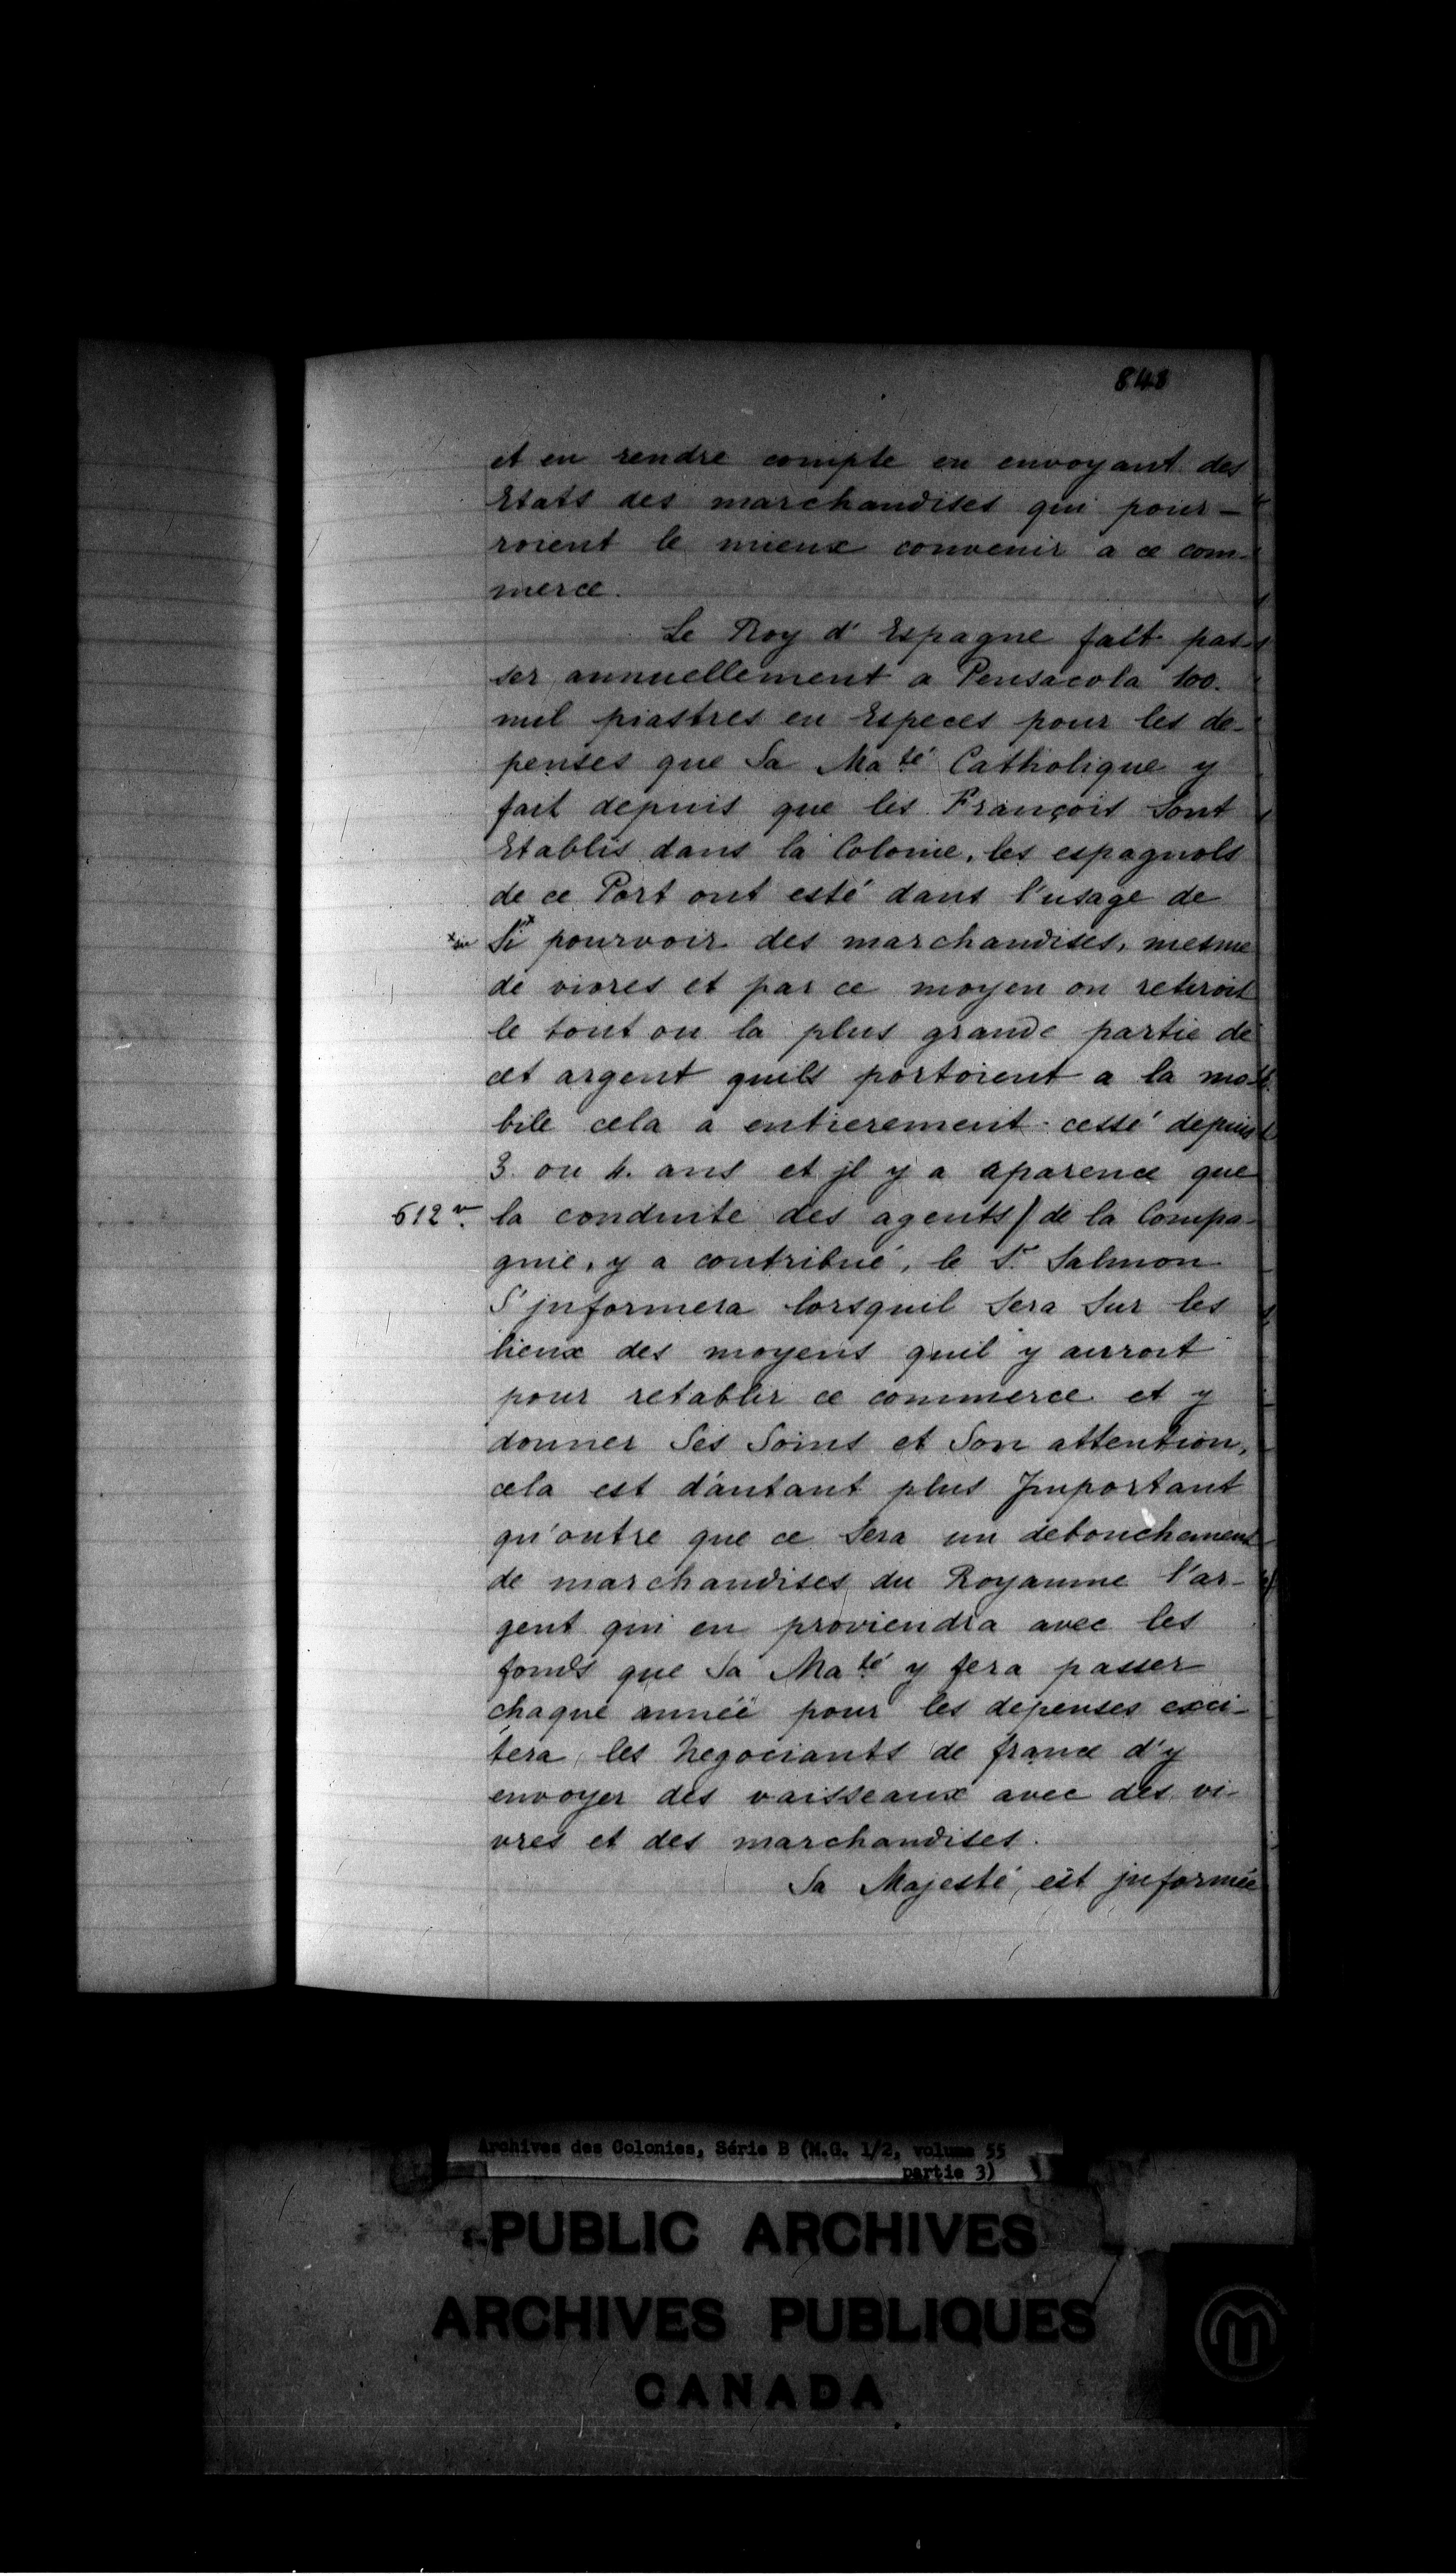 848
et en rendre compte en envoyant des
Etats des marchandises qui pour-
roient le mieux convenir a ce com-
merce.
Le Roy d'Espagne fait pas-
ser annuellement a Pensacola 100.
mil piastres en Especes pour les de-
penses que Sa Ma.té Catholique y
fait depuis que les François Sont
Etablis dans la Colonie, les espagnols
de ce Port ont esté dans l'usage de
Si x pourvoir des marchandises, mesme
de vivres et par ce moyen on retiroit
le tout ou la plus grande partie de
cet argent quils portoient a la mo-
bile cela a entierement cessé depuis
3. ou 4. ans et jl y a aparence que
612 v. la conduite des agents / de la Compa-
gnie, y a contribué, le S.r Salmon
S'jnformera lorsquil Sera Sur les
lieux des moyens quil y auroit
pour retablir ce commerce et y
donner Ses Soins et Son attention,
cela est d'autant plus Jmportant
qu'outre que ce Sera un debouchement
de marchandises du Royaume l'ar-
gent qui en proviendra avec les
fonds que Sa Ma.té y fera passer
chaque année pour les depenses exci-
tera les Negociants de france d'y
envoyer des vaisseaux avec des vi-
vres et des marchandises.
Sa Majesté, est jnformée
Archives des Colonies, Série B (M.G. 1/2, volume 55
partie 3)
PUBLIC ARCHIVES
ARCHIVES PUBLIQUES
CANADA